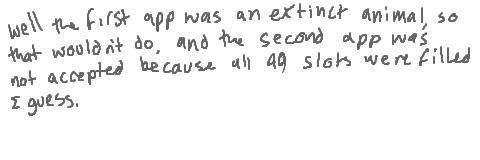 Well the first app was an extinct animal, so
that wouldn't do, and the second app was
not accepted because all 49 slots were filled
I guess.